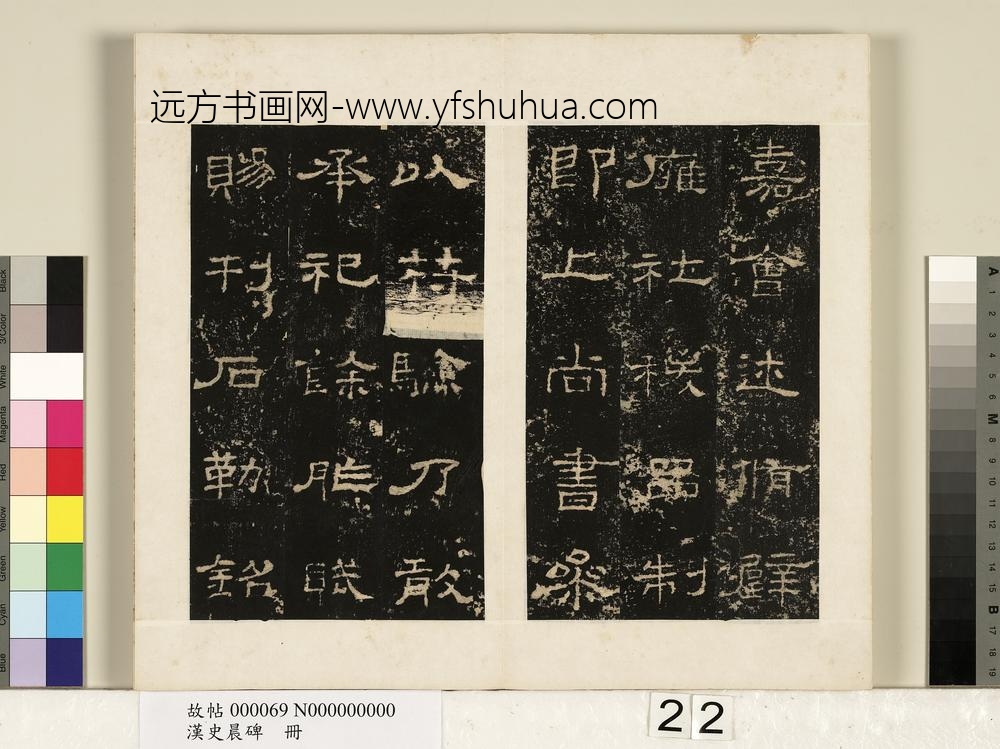 远方书画网-www.yfshuhua.com
嘉會述脩璧
廱社稷品制
即上尚書參
以符驗乃敢
承祀餘胙賦
賜刊石勒銘
Black
3/Color
White
Magenta
Red
Yellow
Green
Cyan
Blue
A 1 2 3 4 5 6 M 8 9 10 11 12 13 14 15 B 17 18 19
故帖 000069 N000000000
漢史晨碑 冊
22